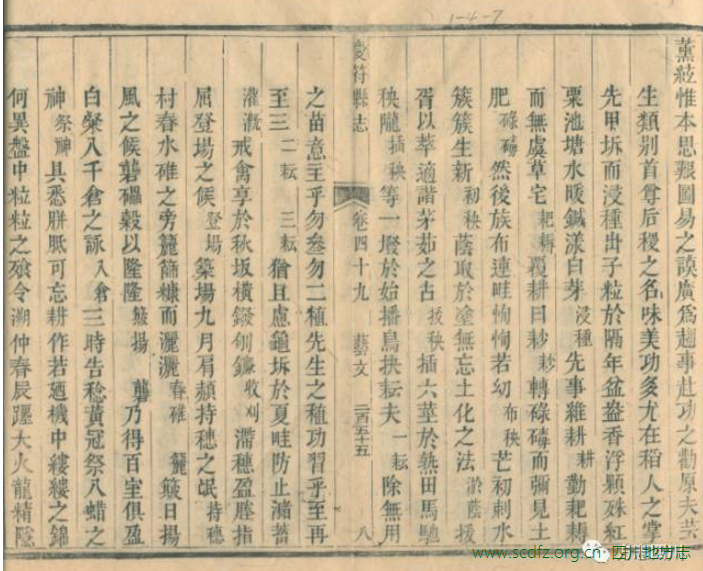 1-4-7
薰絃惟本思艱圖易之謨廣爲趨事赴功之勸原夫芸
生類別首尊后稷之名味美功多尤在稻人之掌
先甲坼而浸種出子粒於隔年盆盎香浮顆殊紅
粟池塘水暖鍼漾白芽 浸種 先事雜耕 耕 勤耙耨
而無虞草宅 耙耨 覆耕曰耖 耖 轉碌碡而彌見土
肥 碌碡 然後族布連畦恂恂若幼 布秧 芒初刺水
簇簇生新 初秧 蔭取於塗無忘土化之法 淤蔭 援
胥以萃適諧茅茹之古 拔秧 插六莖於熱田馬馳
秧隴 插秧 等一墢於始播鳥抉耘夫 一耘 除無用
慶符縣志 卷四十九 藝文 二百五十五 八
之苗意至乎勿叄勿二植先生之穜功習乎至再
至三 二耘 三耘 猶且慮龜坼於夏畦防止潴蓄
灌漑 戒禽享於秋坂橫鏺刎鐮 收刈 濡穗盈塍指
屈登場之候 登場 築場九月肩頳持穗之氓 持穗
村舂水碓之旁簏篩糠而灑灑 舂碓 簏 簸日揚
風之候礱礧穀以隆隆 簸揚 礱 乃得百室俱盈
白粲入千倉之詠 入倉 三時告稔黃冠祭八蜡之
神 祭神 具悉胼胝可忘耕作若廼機中縷縷之錦
何異盤中粒粒之飱令溯仲春辰躔大火龍精陰
www.scdfz.org.cn
四川地方志